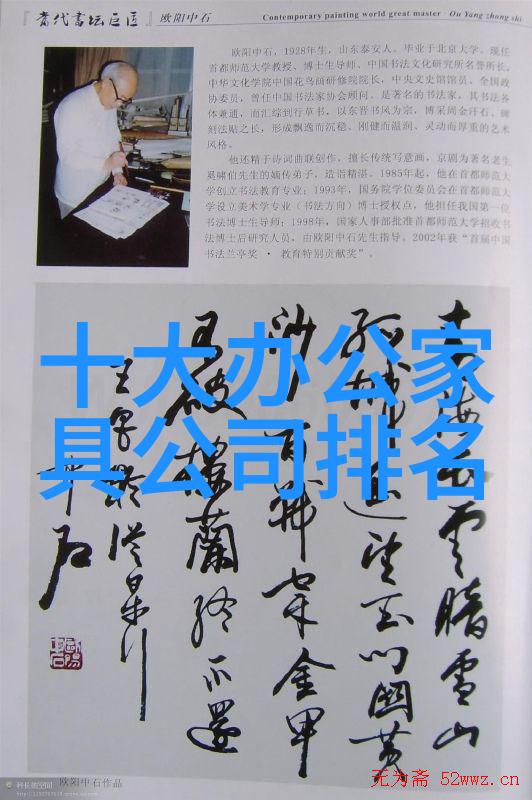 『当代书坛巨匠』欧阳中石
Contemporary painting world great master · Ou Yang zhong shi
欧阳中石，1928年生，山东泰安人。毕业于北京大学。现任
首都师范大学教授、博士生导师、中国书法文化研究所名誉所长，
中华文化学院中国花鸟画研修院院长，中央文史馆馆员、全国政
协委员，曾任中国书法家协会顾问。是著名的书法家，其书法各
体兼通，而汇综到行草书，以东晋书风为宗，博采周金汗石、碑
刻法贴之长，形成飘逸而沉稳、刚健而温润、灵动而厚重的艺术
风格。
他还精于诗词曲联创作，擅长传统写意画，京剧为著名老生
奚啸伯先生的嫡传弟子，造诣精湛。1985年起，他在首都师范大
学创立书法教育专业；1993年，国务院学位委员会在首都师范大
学设立美术学专业（书法方向）博士授权点，他担任我国第一位
书法博士生导师；1998年，国家人事部批准首都师范大学招收书
法博士后研究人员，由欧阳中石先生指导。2002年获“首届中国
书法兰亭奖 · 教育特别贡献奖”。
十大办公家
具公司排名
青海长云暗雪山
孤城遥望玉门关黄
沙百战穿金甲
不破楼兰终不还
王昌龄从军行
中石
欧阳中石作品
无为斋 52wwz.cn